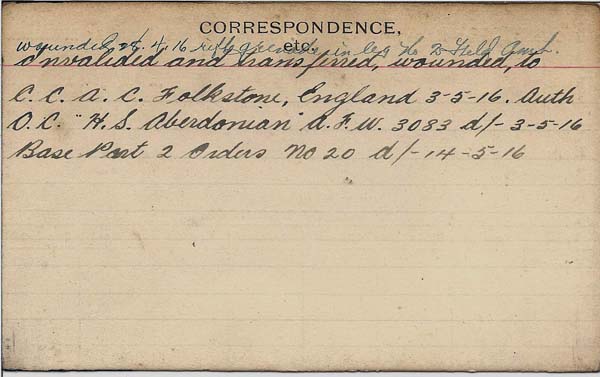 CORRESPONDENCE,
etc.
wounded 28.4.16 rifle grenade in leg to 2 Field Amb.
Invalided and transferred, wounded, to
C. C. A. C. Folkstone, England 3-5-16. Auth
O.C. "H.S. Aberdonian" A.F.W. 3083 d/- 3-5-16
Base Part 2 Orders No 20 d/- 14-5-16